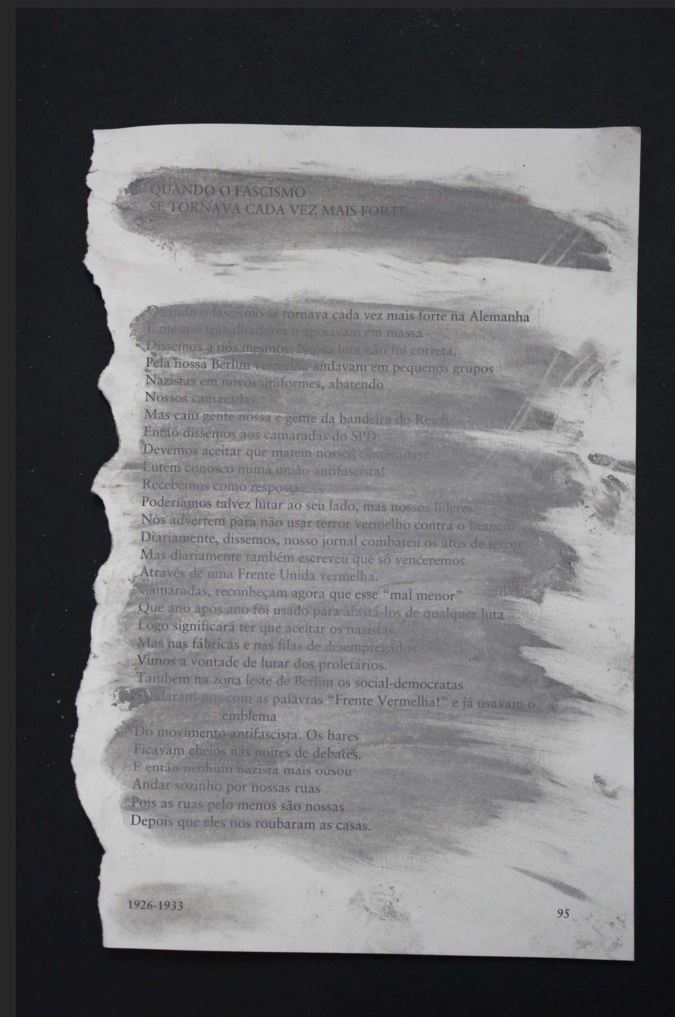 QUANDO O FASCISMO
SE TORNAVA CADA VEZ MAIS FORTE
Quando o fascismo se tornava cada vez mais forte na Alemanha
E mesmo trabalhadores o apoiavam em massa
Dissemos a nós mesmos: Nossa luta não foi correta.
Pela nossa Berlim vermelha andavam em pequenos grupos
Nazistas em novos uniformes, abatendo
Nossos camaradas.
Mas caiu gente nossa e gente da bandeira do Reich.
Então dissemos aos camaradas do SPD:
Devemos aceitar que matem nossos camaradas?
Lutem conosco numa união antifascista!
Recebemos como resposta:
Poderíamos talvez lutar ao seu lado, mas nossos líderes
Nos advertem para não usar terror vermelho contra o branco.
Diariamente, dissemos, nosso jornal combateu os atos de terror
Mas diariamente também escreveu que só venceremos
Através de uma Frente Unida vermelha.
Camaradas, reconheçam agora que esse “mal menor”
Que ano após ano foi usado para afastá-los de qualquer luta
Logo significará ter que aceitar os nazistas.
Mas nas fábricas e nas filas de desempregados
Vimos a vontade de lutar dos proletários.
Também na zona leste de Berlim os social-democratas
Saudaram-nos com as palavras “Frente Vermelha!” e já usavam o
emblema
Do movimento antifascista. Os bares
Ficavam cheios nas noites de debates.
E então nenhum nazista mais ousou
Andar sozinho por nossas ruas
Pois as ruas pelo menos são nossas
Depois que eles nos roubaram as casas.
1926-1933
95